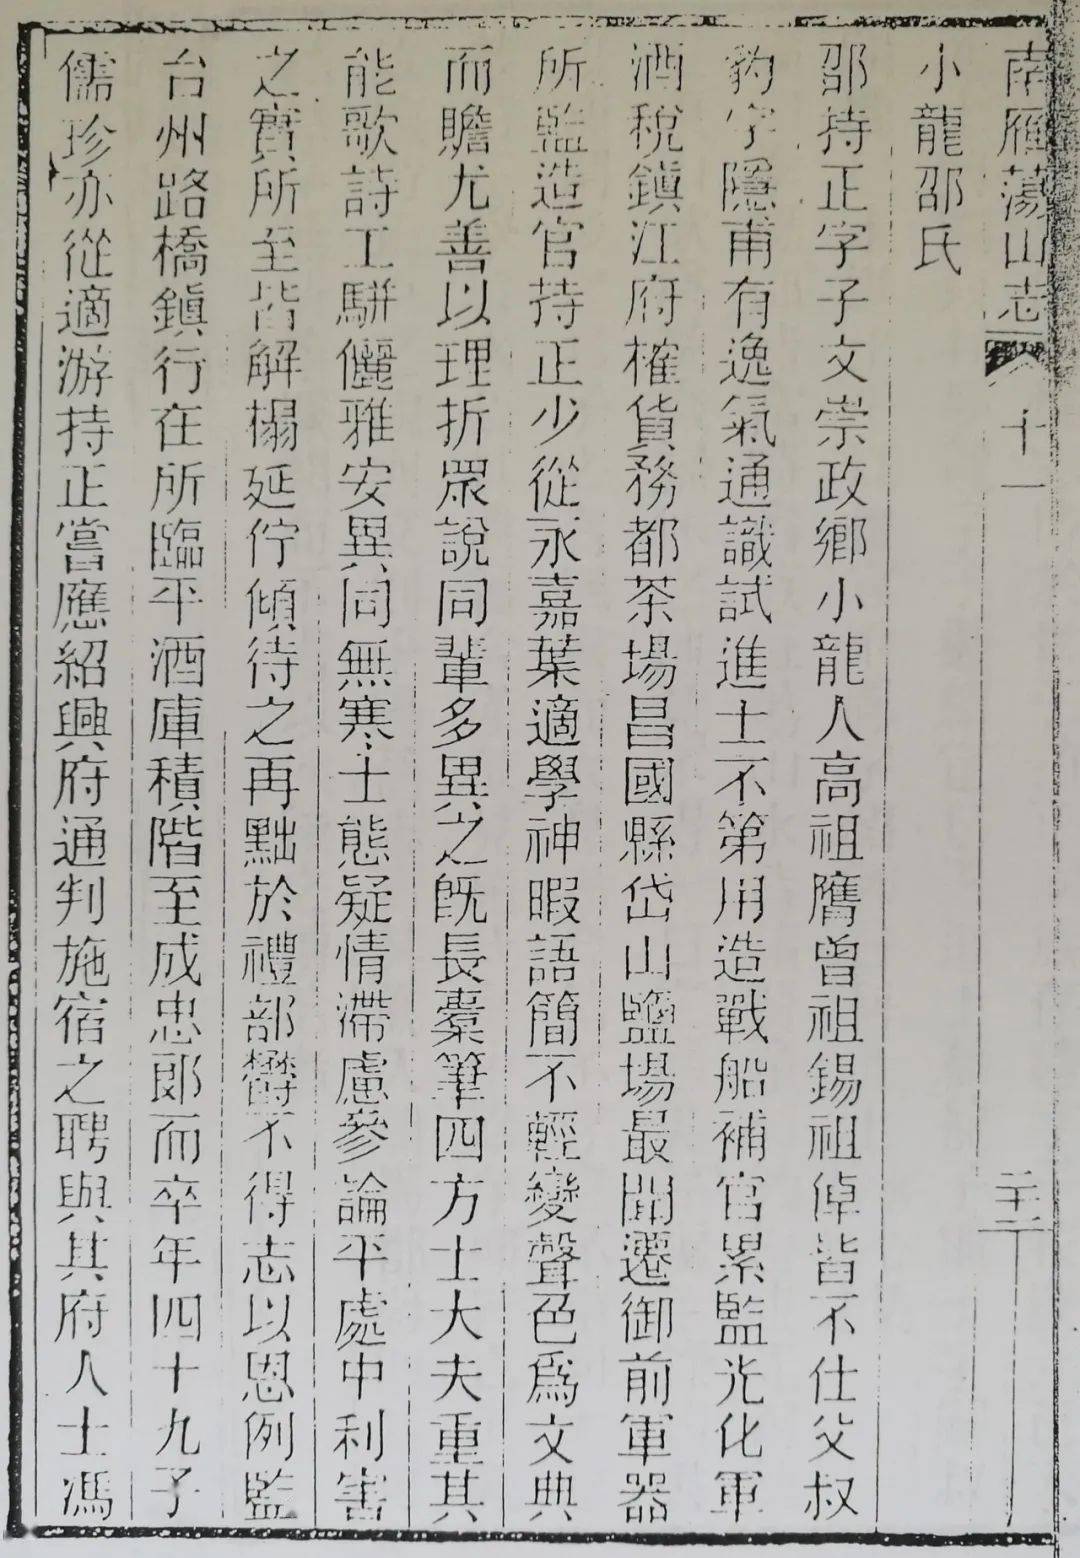 南雁蕩山志 十一 二十二
小龍邵氏
邵持正字子文崇政鄉小龍人高祖膺曾祖錫祖倬皆不仕父叔
豹字隱甫有逸氣通識試進士不第用造戰船補官累監光化軍
酒稅鎮江府榷貨務都茶場昌國縣岱山鹽場最聞遷御前軍器
所監造官持正少從永嘉葉適學神暇語簡不輕變聲色爲文典
而贍尤善以理折眾說同輩多異之既長橐筆四方士大夫重其
能歌詩工駢儷雅安異同無寒士態疑情滯慮參論平處中利害
之實所至皆解榻延佇傾待之再黜於禮部鬱不得志以恩例監
台州路橋鎮行在所臨平酒庫積階至成忠郎而卒年四十九子
儒珍亦從適游持正嘗應紹興府通判施宿之聘與其府人士馮